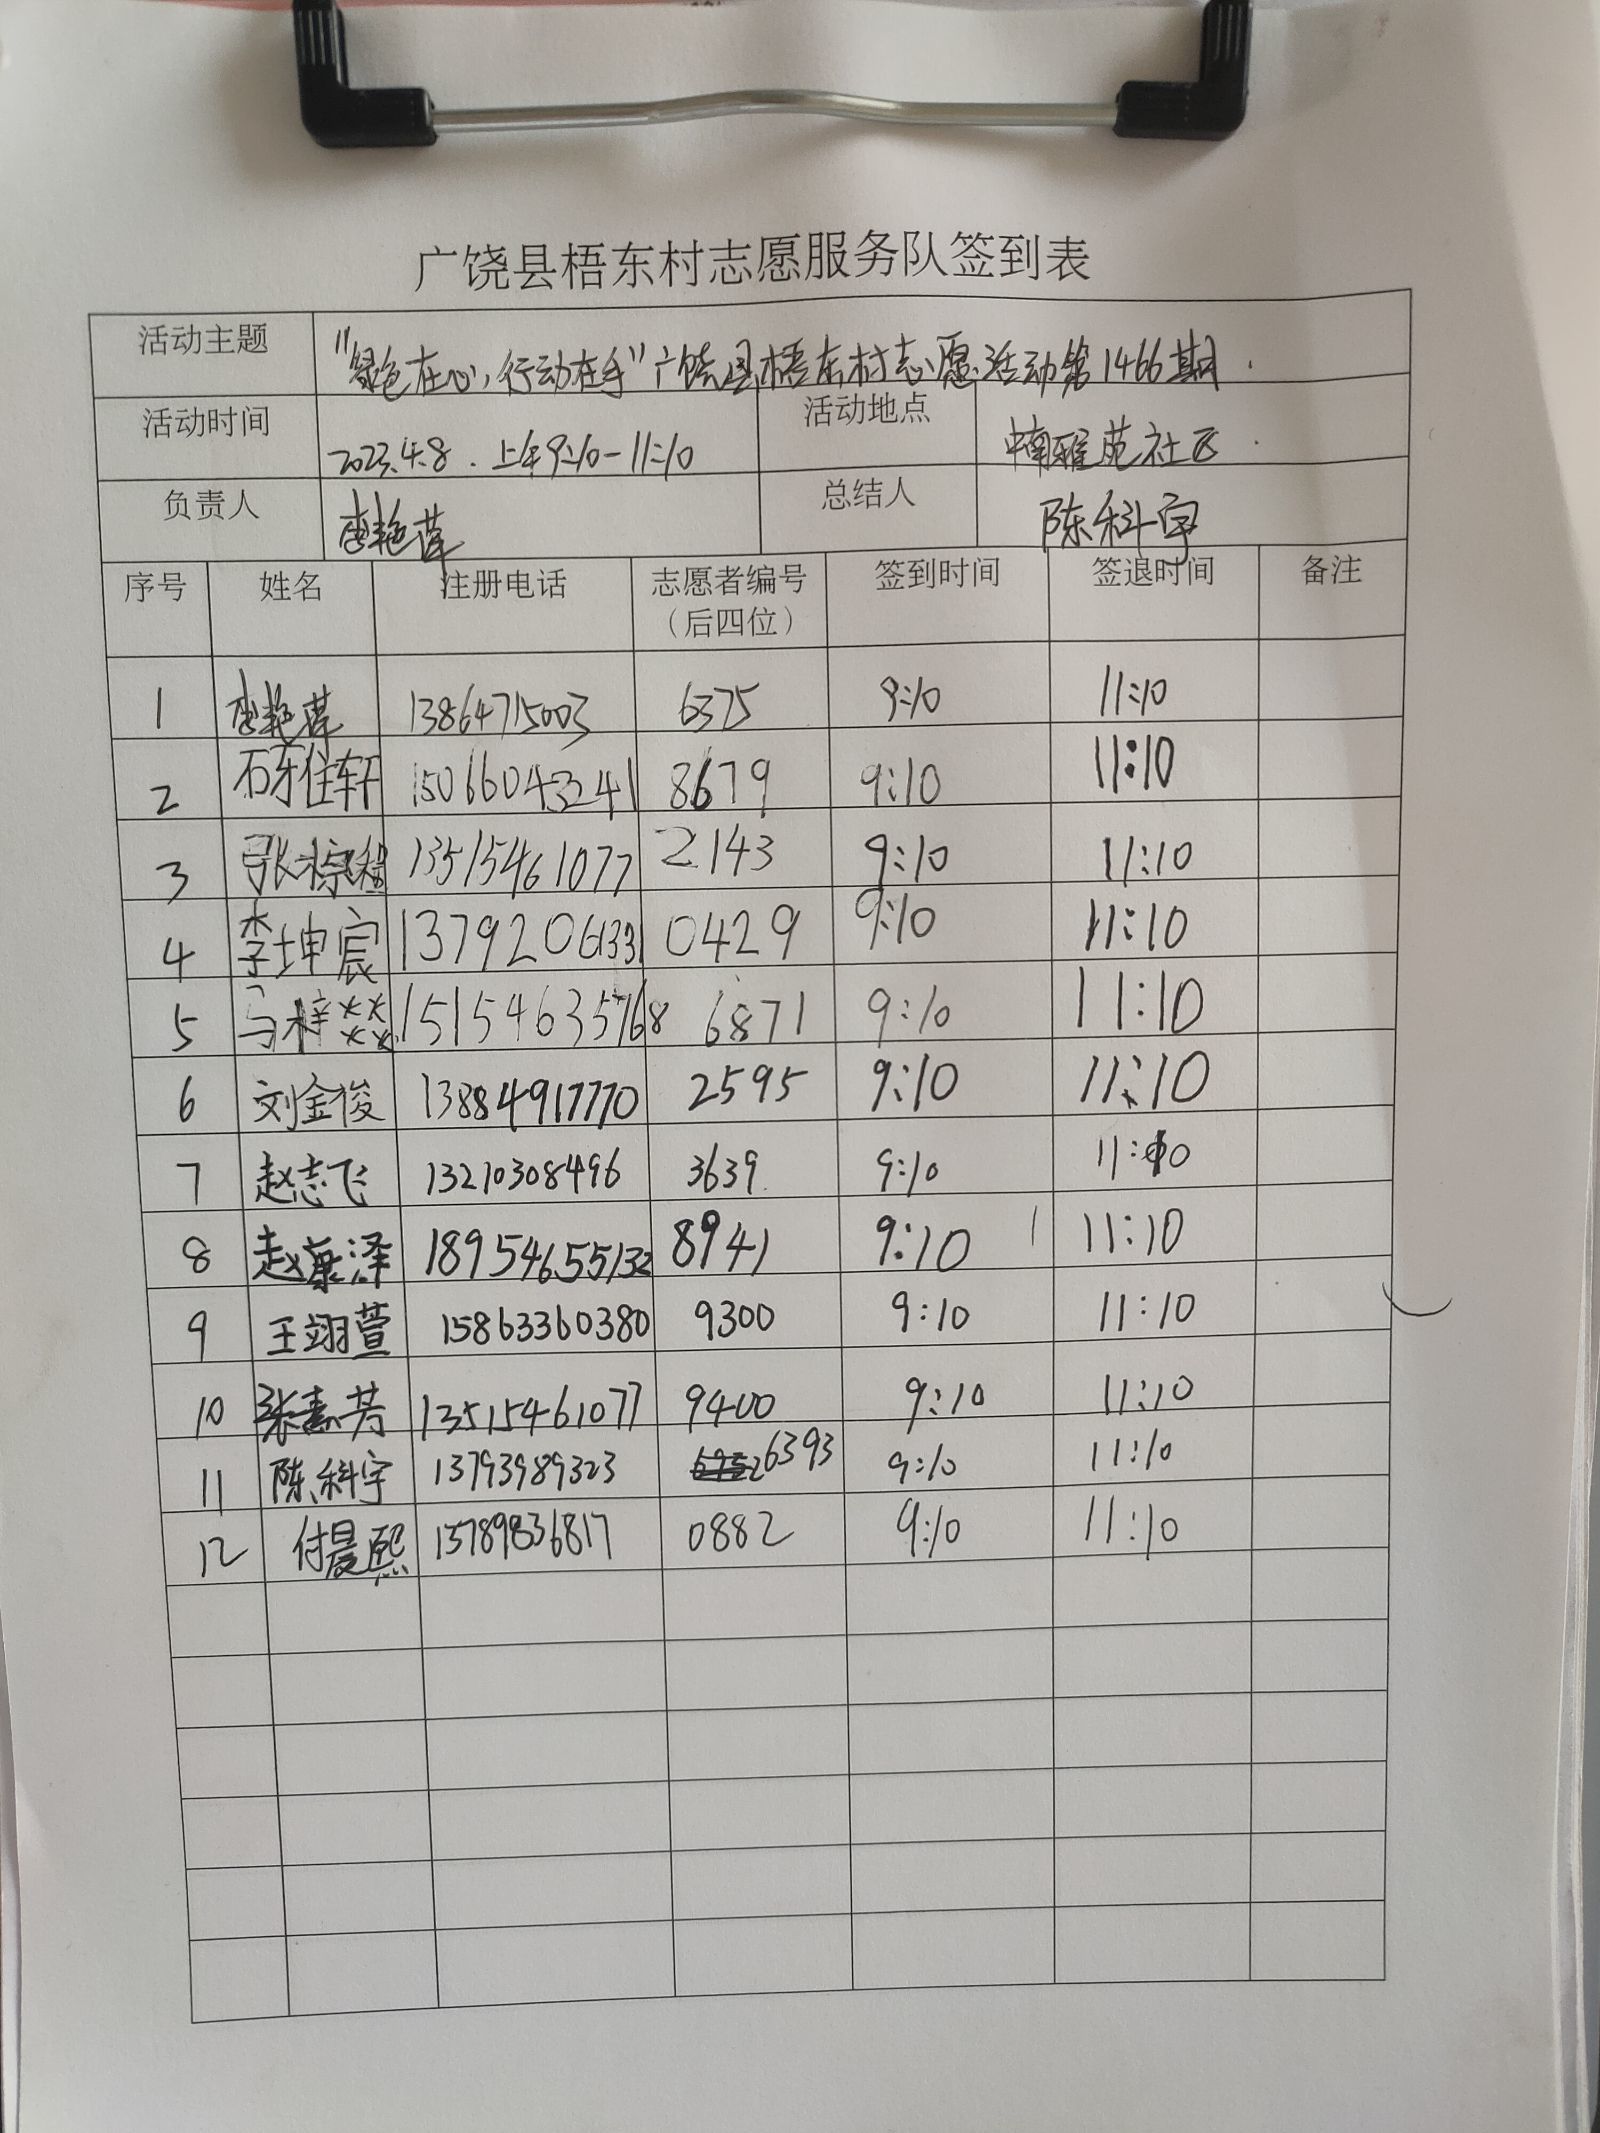 广饶县梧东村志愿服务队签到表
活动主题 "绿色在心,行动在手"广饶县梧东村志愿活动第1466期.
活动时间 2023.4.8. 上午9:10-11:10 活动地点 雅苑社区.
负责人 李艳萍 总结人 陈科宇
序号 姓名 注册电话 志愿者编号 签到时间 签退时间 备注
(后四位)
1 李艳萍 13864715003 6375 9:10 11:10
2 15066043241 8679 9:10 11:10
3 张棕稳 13515461077 2143 9:10 11:10
4 李坤宸 13792061331 0429 9:10 11:10
5 马梓 15154635768 6871 9:10 11:10
6 刘金俊 13884917770 2595 9:10 11:10
7 赵志飞 13210308496 3639 9:10 11:10
8 赵康泽 18954655132 8941 9:10 11:10
9 王翊萱 15863360380 9300 9:10 11:10
10 张素芳 13515461077 9400 9:10 11:10
11 陈科宇 13793989323 6393 9:10 11:10
12 付晨熙 13789836817 0882 9:10 11:10